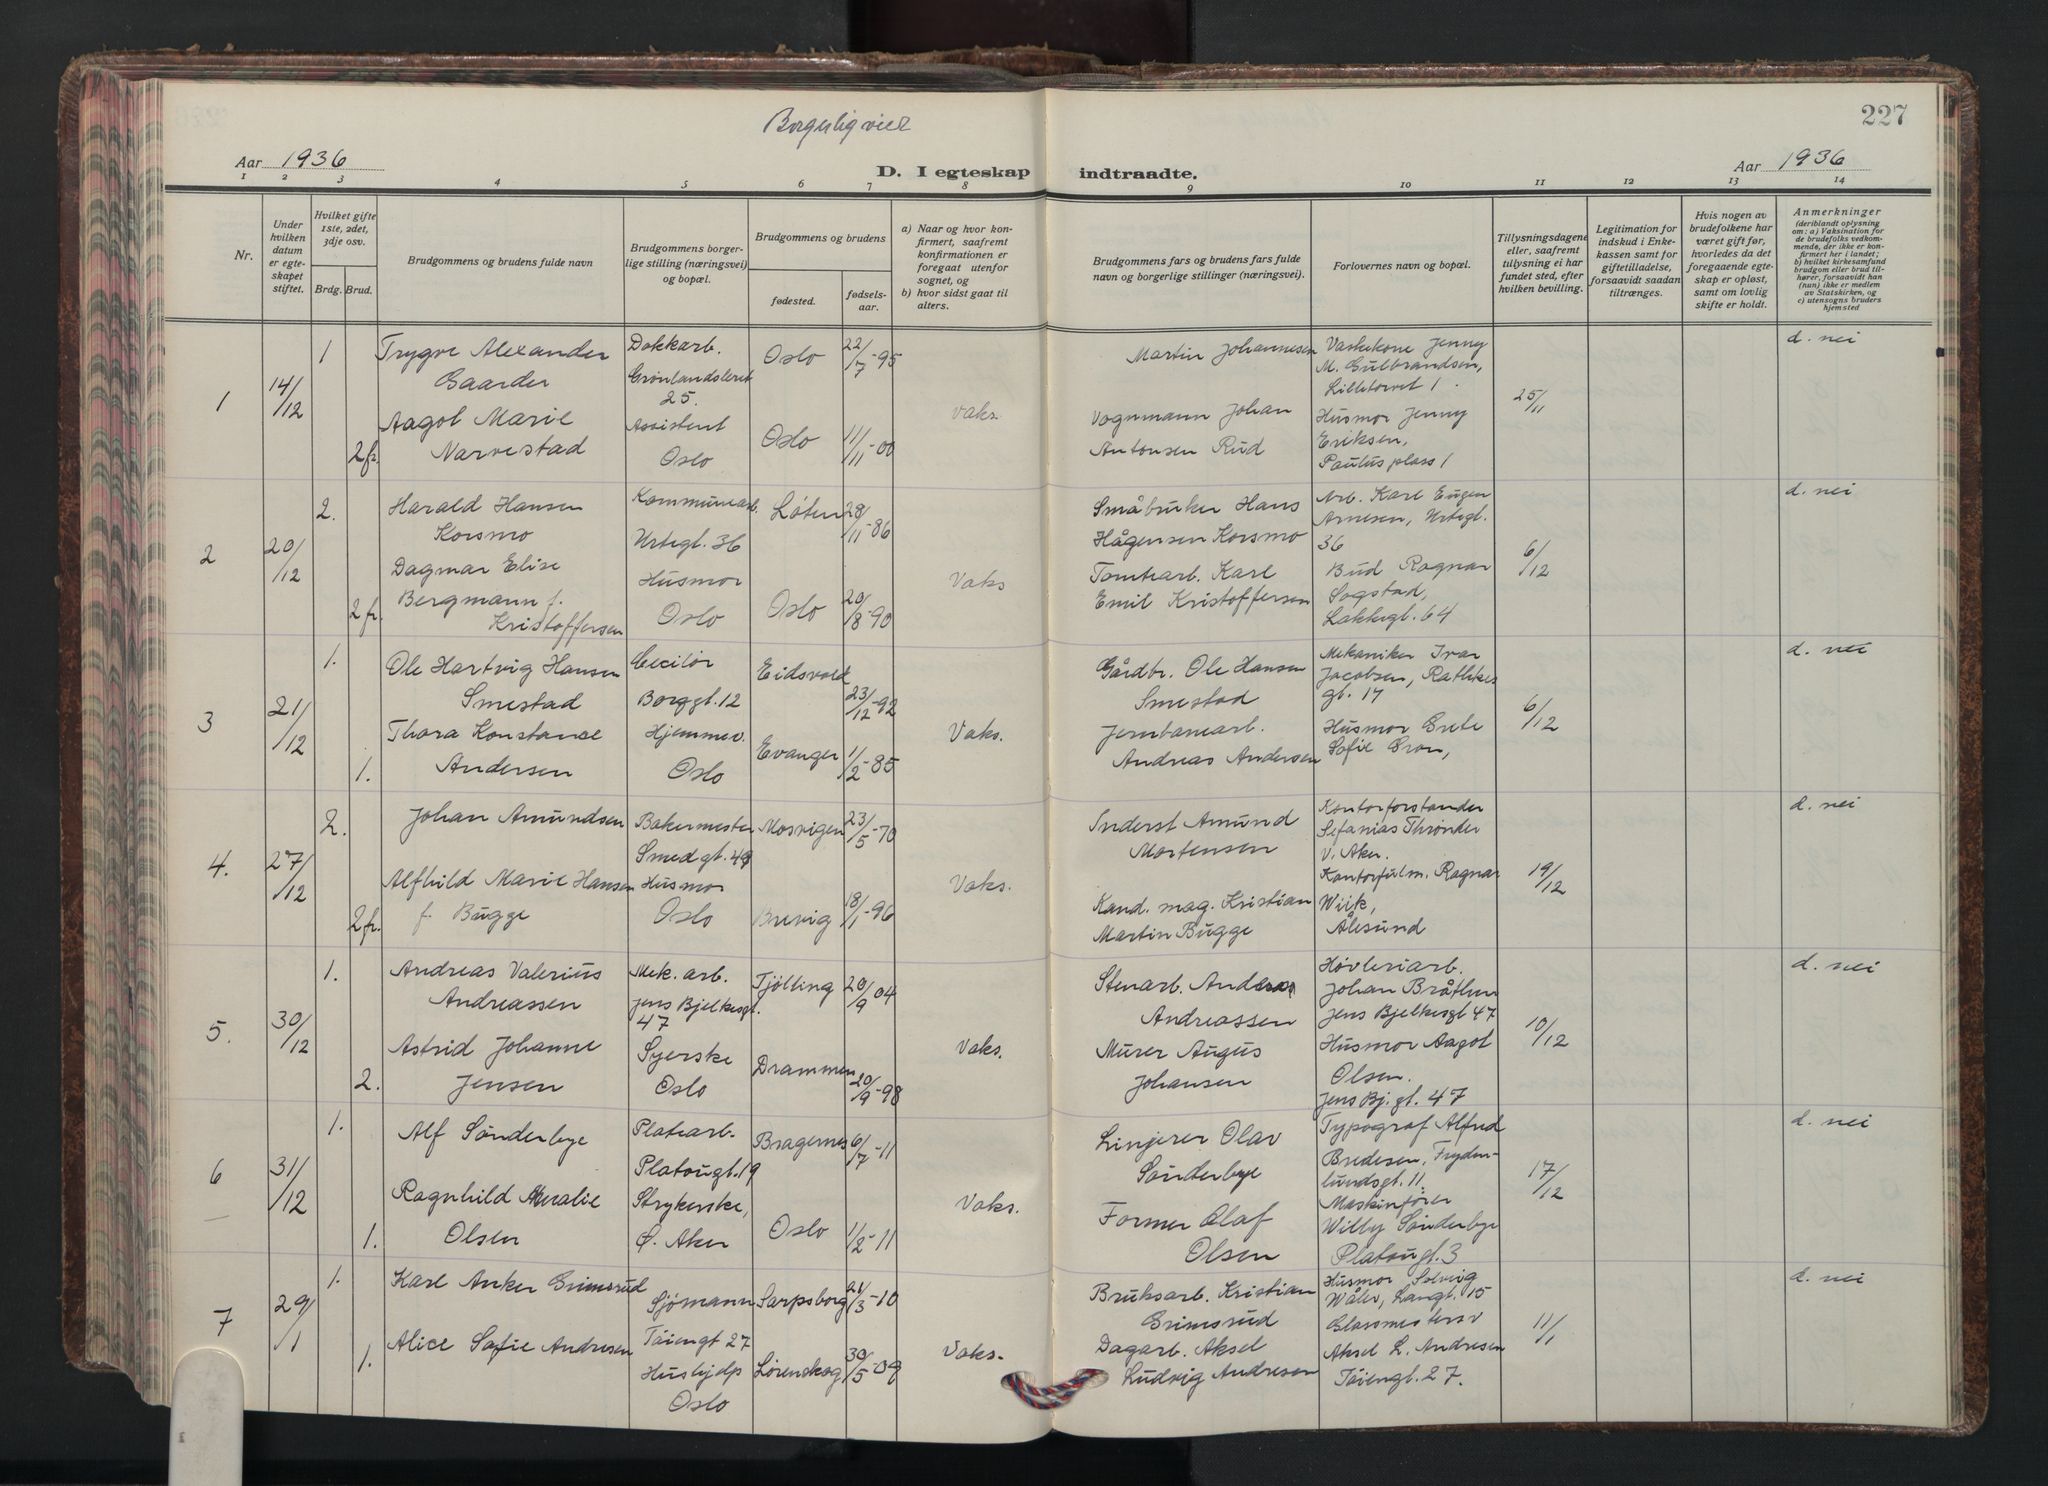 Borgerlig viet
227
Aar 1936
D. I egteskap indtraadte.
Aar 1936
1 2 3 4 5 6 7 8 9 10 11 12 13 14
Nr.
Under hvilken datum er egteskapet stiftet.
Hvilket gifte 1ste, 2det, 3dje osv.
Brdg. Brud.
Brudgommens og brudens fulde navn
Brudgommens borgerlige stilling (næringsvei) og bopæl.
Brudgommens og brudens
fødested.
fødselsaar.
a) Naar og hvor konfirmert, saafremt konfirmationen er foregaat utenfor sognet, og
b) hvor sidst gaat til alters.
Brudgommens fars og brudens fars fulde navn og borgerlige stillinger (næringsvei).
Forlovernes navn og bopæl.
Tillysningsdagene eller, saafremt tillysning ei har fundet sted, efter hvilken bevilling.
Legitimation for indskud i Enkekassen samt for giftetilladelse, forsaavidt saadan tiltrænges.
Hvis nogen av brudefolkene har været gift før, hvorledes da det foregaaende egteskap er opløst, samt om lovlig skifte er holdt.
Anmerkninger
(deriblandt oplysning om: a) Vaksination for de brudefolks vedkommende, der ikke er konfirmert her i landet; b) hvilket kirkesamfund brudgom eller brud tilhører, forsaavidt han (hun) ikke er medlem av Statskirken, og c) utensogns bruders hjemsted
1
14/12
1
Trygve Alexander
Baarder
Dokkarb.
Grønlandsleret
25.
Oslo
22/7-95
2fr.
Aagot Marie
Narvestad
Assistent
Oslo
Oslo
11/11-00
Vaks.
Martin Johannesen
Vognmann Johan
Antonsen Rud
Vaskekone Jenny
M. Gulbrandsen,
Lilletorvet 1.
Husmor Jenny
Eriksen,
Paulus plass 1
25/11
d. nei
2
20/12
2.
Harald Hansen
Korsmo
Kommunearb.
Urtegt. 36
Løten
28/11-86
2fr.
Dagmar Elise
Bergmann f.
Kristoffersen
Husmor
Oslo
Oslo
20/8-90
Vaks
Småbruker Hans
Hågensen Korsmo
Tomtearb. Karl
Emil Kristoffersen
Arb. Karl Eugen
Arnesen, Urtegt.
36
Bud Ragnar
Sogstad,
Lakkegt. 64
6/12
d. nei
3
21/12
1.
Ole Hartvig Hansen
Smestad
Borggt. 12
Eidsvold
23/12-92
1.
Thora Konstanse
Andersen
Hjemmev.
Oslo
Evanger
1/2-85
Vaks.
Gårdbr. Ole Hansen
Smestad
Jernbanearb.
Andreas Andersen
Mekaniker Ivar
Jacobsen, Rathkes
gt. 17
Husmor Grete
Sofie Gron,
6/12
d. nei
4.
27/12
2.
Johan Amundsen
Bakermester
Smedgt. 49
Mosvigen
23/5-70
2fr.
Alfhild Marie Hansen
f. Bugge
Husmor
Oslo
Brevig
18/1-96
Vaks.
Inderst Amund
Mortensen
Kand. mag. Kristian
Martin Bugge
Kontorforstander
Sefanias Thrønder
V. Aker.
Kontorfulm. Ragnar
Wiik,
Ålesund
19/12
d. nei
5.
30/12
1.
Andreas Valerius
Andreassen
Mek. arb.
Jens Bjelkesgt.
47
Tjølling
20/9 04
2.
Astrid Johanne
Jensen
Syerske
Oslo
Drammen
20/9-98
Vaks.
Stenarb. Anders
Andreassen
Murer Augus
Johansen
Høvleriarb.
Johan Bråthen
Jens Bjelkesgt 47
Husmor Aagot
Olsen.
Jens Bj. gt. 47
10/12
d. nei
6
31/12
1.
Alf Sønderbye
Platearb.
Platougt. 19
Bragernes
6/7-11
1.
Ragnhild Amalie
Olsen
Strykerske,
Ø. Aker
Oslo
1/2-11
Vaks.
Linjerer Olav
Sønderbye
Former Olaf
Olsen
Typograf Alfred
Bredesen, Fryden-
lundsgt. 11.
Maskinfører
Willy Sønderbye
Platougt. 3
17/12
d. nei
7
29/1
1.
Karl Anker Grimsrud
Sjømann
Tøiengt 27
Sarpsborg
21/3-10
1.
Alice Sofie Andresen
Hushjelp
Oslo
Lørenskog
30/5-09
Vaks.
Bruksarb. Kristian
Grimsrud
Dagarb. Aksel
Ludvig Andresen
Husmor Solveig
Wåler, Langt. 15
Glassmestersv
Aksel L. Andresen
Tøiengt. 27.
11/1
d. nei